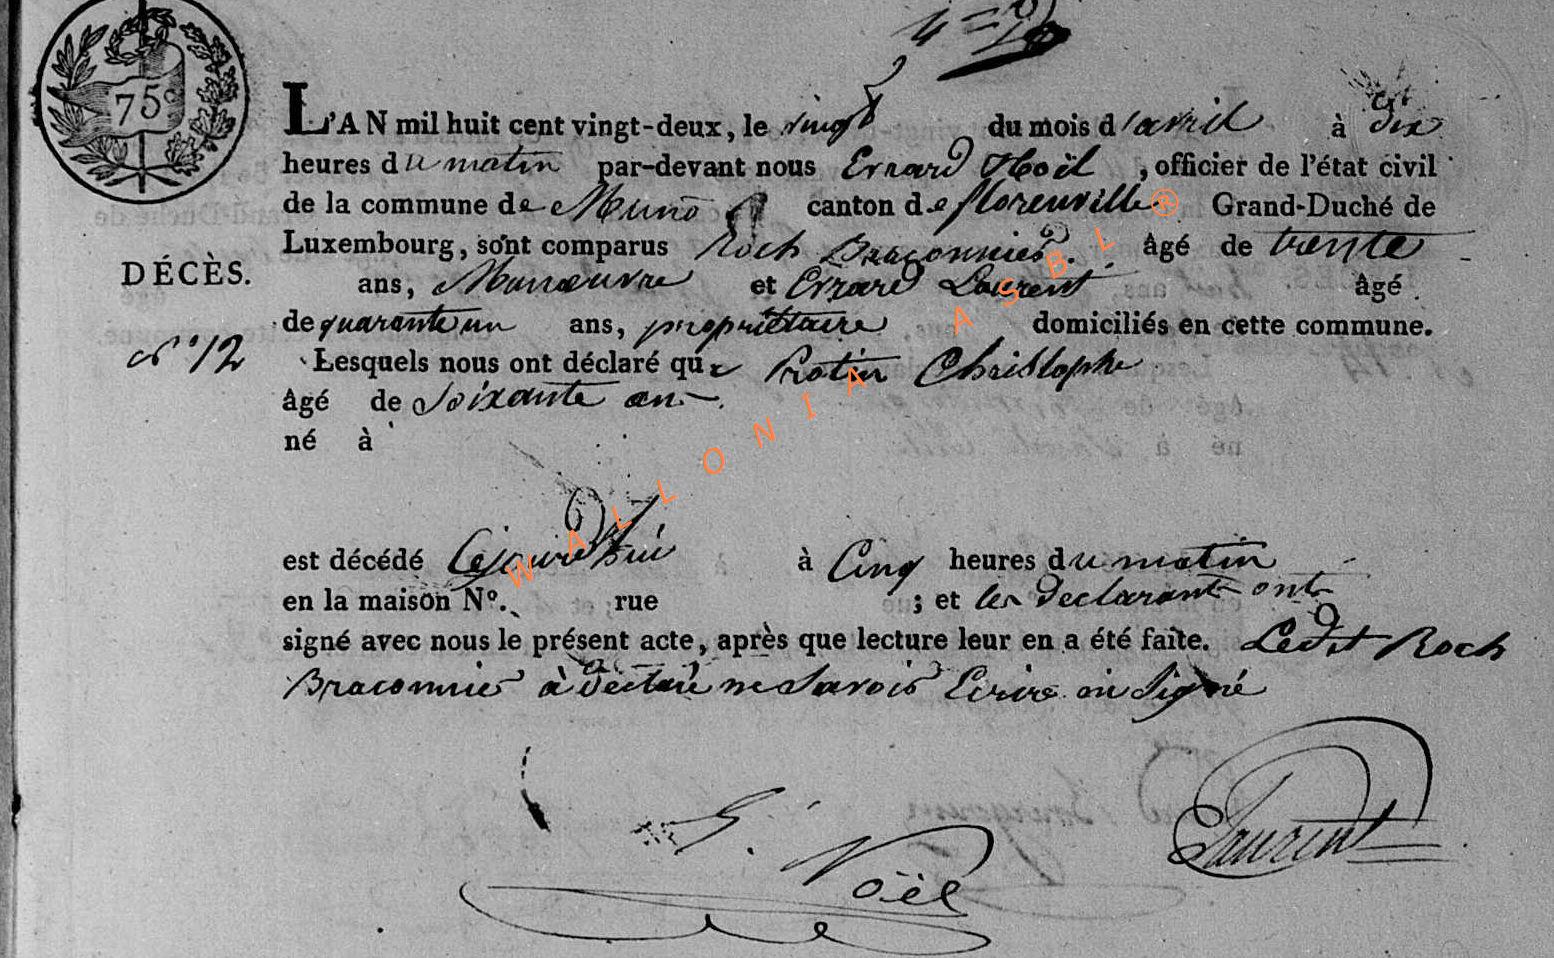 75c
L'AN mil huit cent vingt-deux, le vingt du mois d'avril à dix
heures du matin par-devant nous Errard Noël, officier de l'état civil
de la commune de Muno canton de florenville Grand-Duché de
Luxembourg, sont comparus Roch Braconnier. âgé de trente
DÉCÈS.
ans, Manœuvre et Errard Laurent âgé
de quarante un ans, propriétaire domiciliés en cette commune.
N° 12
Lesquels nous ont déclaré que Protin Christophe
âgé de Soixante ans.
né à
est décédé Cejourd'hui à Cinq heures du matin
en la maison N°. rue ; et les declarants ont
signé avec nous le présent acte, après que lecture leur en a été faite. Ledit Roch
Braconnier à déclaré ne Savoir Ecrire ni Signé
E. Noël
Laurent
WALLONIA ASBL®